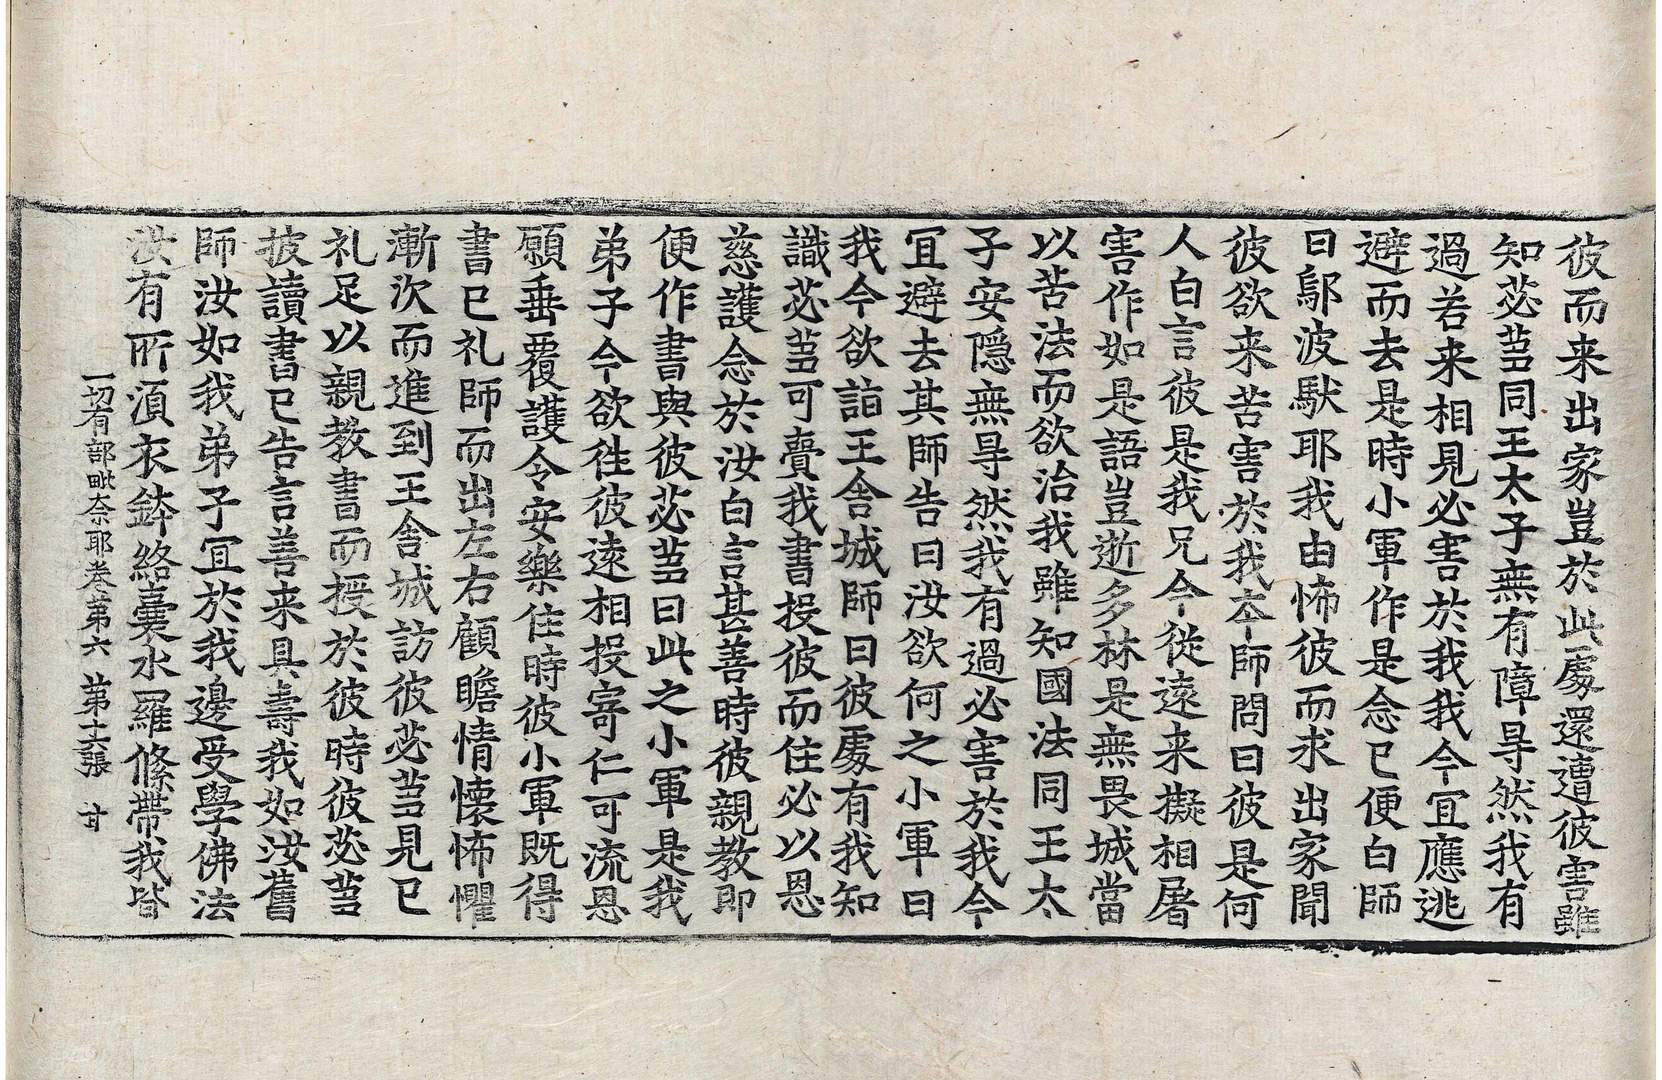 彼而来出家豈於此處還遭彼害雖
知苾蒭同王太子無有障㝵然我有
過若来相見必害於我我今冝應逃
避而去是時小軍作是念已便白師
曰鄔波馱耶我由怖彼而求出家聞
彼欲来苦害於我夲師問曰彼是何
人白言彼是我兄今從遠来擬相屠
害作如是語豈逝多林是無畏城當
以苦法而欲治我雖知國法同王太
子安隱無㝵然我有過必害於我今
冝避去其師告曰汝欲何之小軍曰
我今欲詣王舎城師曰彼處有我知
識苾蒭可賷我書投彼而住必以恩
慈護念於汝白言甚善時彼親教即
便作書與彼苾蒭曰此之小軍是我
弟子今欲徃彼遠相投寄仁可流恩
願垂覆護令安樂住時彼小軍既得
書已礼師而出左右顧瞻情懷怖懼
漸次而進到王舎城訪彼苾蒭見已
礼足以親教書而授於彼時彼苾蒭
披讀書已告言善来具壽我如汝舊
師汝如我弟子冝於我邊受學佛法
汝有所湏衣鉢絡囊水羅絛帶我皆
一切有部毗奈耶卷第六 第十二張 甘